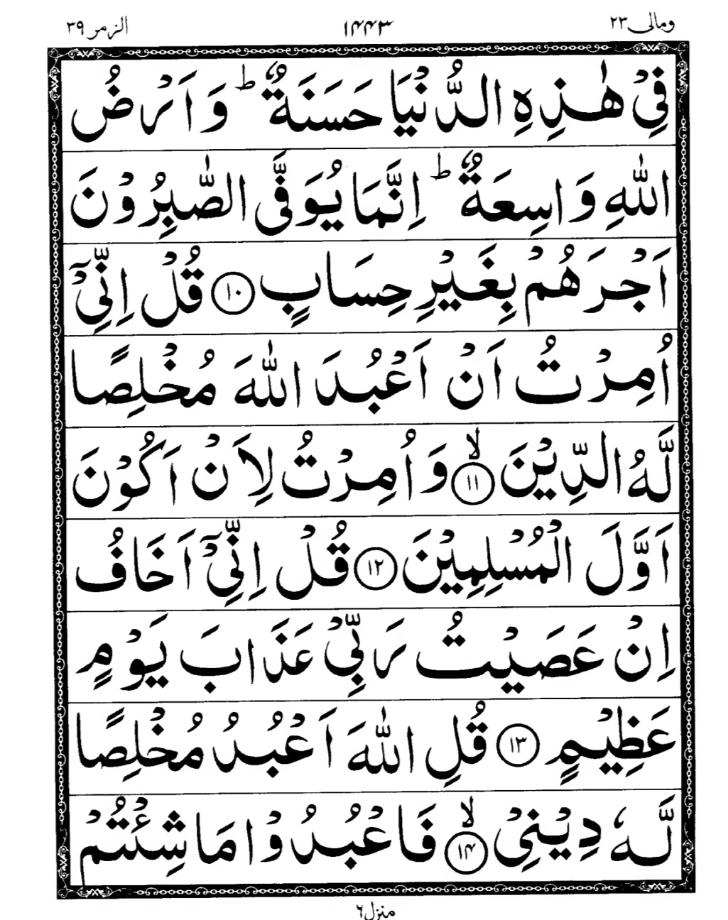 الزمر ۳۹ ۱۴۴۳ ومالی ۲۳
فِیْ هٰذِهِ الدُّنْیَا حَسَنَةٌ ؕ وَ اَرْضُ
اللّٰهِ وَاسِعَةٌ ؕ اِنَّمَا یُوَفَّی الصّٰبِرُوْنَ
اَجْرَهُمْ بِغَیْرِ حِسَابٍ ۱۰ قُلْ اِنِّیْۤ
اُمِرْتُ اَنْ اَعْبُدَ اللّٰهَ مُخْلِصًا
لَّهُ الدِّیْنَ ۙ ۱۱ وَ اُمِرْتُ لِاَنْ اَكُوْنَ
اَوَّلَ الْمُسْلِمِیْنَ ۱۲ قُلْ اِنِّیْۤ اَخَافُ
اِنْ عَصَیْتُ رَبِّیْ عَذَابَ یَوْمٍ
عَظِیْمٍ ۱۳ قُلِ اللّٰهَ اَعْبُدُ مُخْلِصًا
لَّهٗ دِیْنِیْ ۙ ۱۴ فَاعْبُدُوْا مَا شِئْتُمْ
منزل ۶